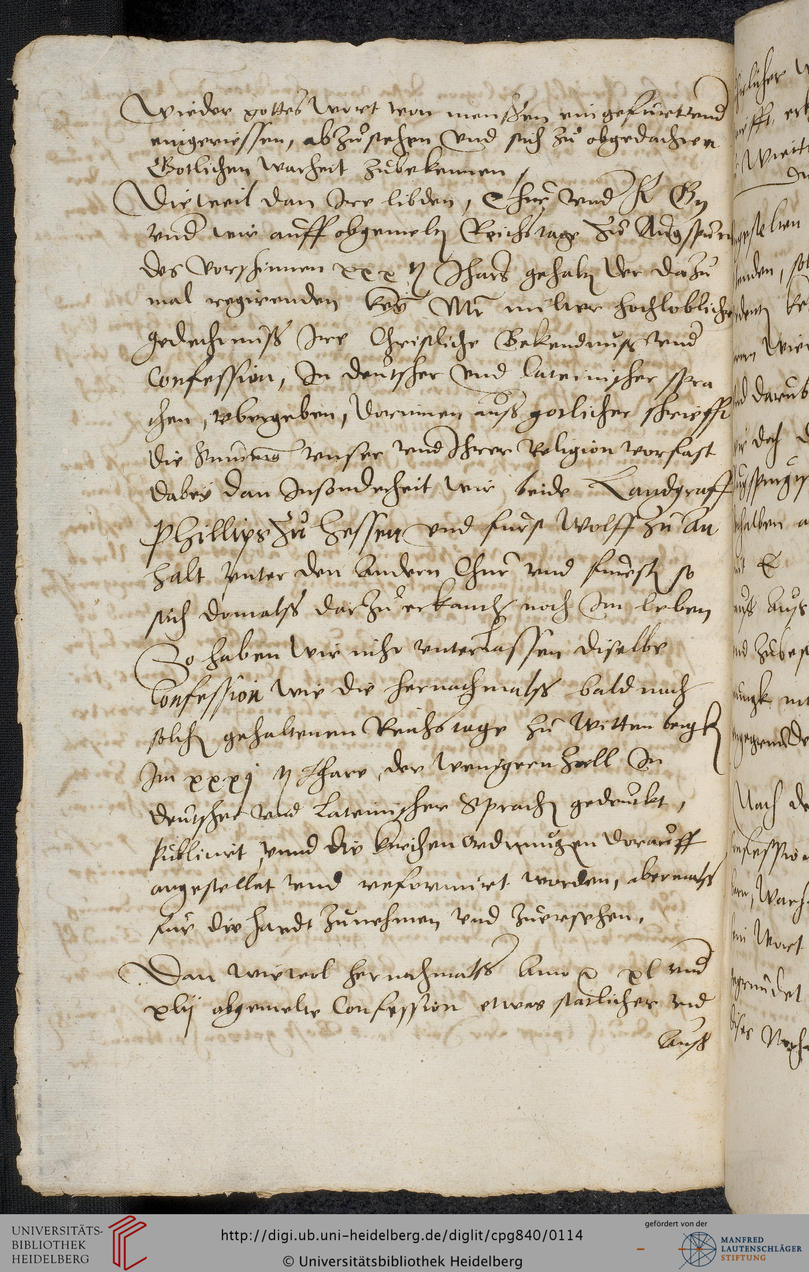 Wieder gottes wort von menschen eingefurt vnd
eingerissen, abzustehen vnd sich zu obgedachter
Gotlichen warheit zubekennen
Dieweil dan Ire libden, Chur vnd
vnd wir auff obgemelten Reichstage zu Augspurg
des vorschinen xxx Jhars gehalten der dazu
mal regirenden Key Mt milter hochloblicher
gedechtnuss Ire Christliche Bekendnuss vnd
Confession, In deutscher vnd lateinischer spra
chen, vbergeben, dorinnen auss gotlicher schriefft
die vnser vnd Ihrer Religion vorfast
dabey dan Insonderheit wir beide Landgraff
Phillips zu Hessen vnd furst Wolff zu An
halt vnter den andern Chur vnd fursten so
sich domalss darzu erkandt noch Im leben
So haben wir nicht vnterlassen diselbe
Confession wie die hernachmalss bald nach
solchem gehaltenen Reichstage zu Wittenbergk
Im xxxj Jhare, der wenigern Zall In
deutscher vnd Lateinischer Sprach gedruckt,
publicirt vnnd die kirchen ordnungen dorauff
angestellet vnd reformirt worden, abermalss
fur die handt zunehmen vnd zuersehen.
Dan wiewol hernachmalss Anno xl vnd
xlij obgemelte Confession etwas statlicher vnd
Auss
UNIVERSITÄTS-
BIBLIOTHEK
HEIDELBERG
http://digi.ub.uni-heidelberg.de/diglit/cpg840/0114
© Universitätsbibliothek Heidelberg
gefördert von der
MANFRED
LAUTENSCHLÄGER
STIFTUNG